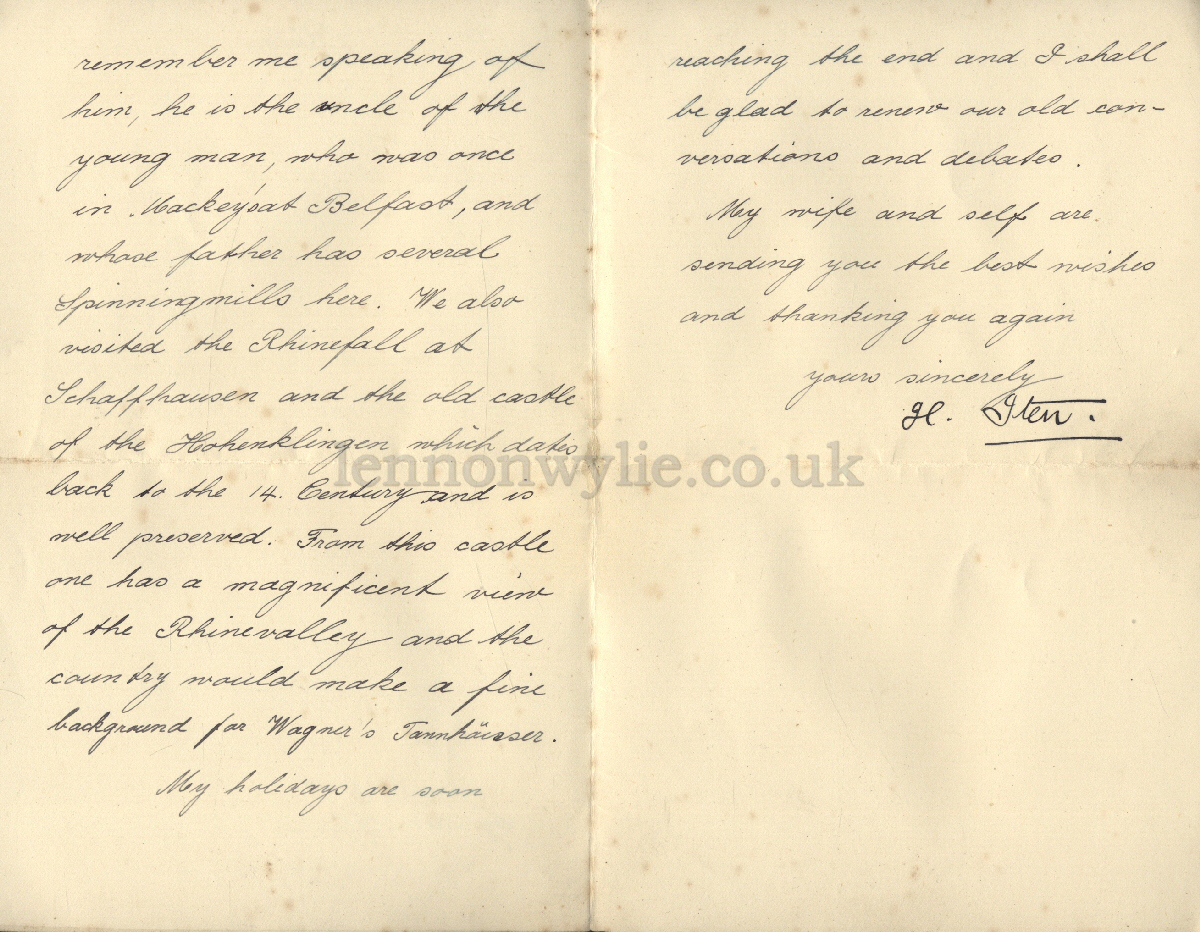 remember me speaking of
him, he is the uncle of the
young man, who was once
in Mackey's at Belfast, and
whose father has several
Spinningmills here. We also
visited the Rhinefall at
Schaffhausen and the old castle
of the Hohenklingen which dates
back to the 14. Century and is
well preserved. From this castle
one has a magnificent view
of the Rhinevalley and the
country would make a fine
background for Wagner's Tannhäusser.
My holidays are soon
reaching the end and I shall
be glad to renew our old con-
versations and debates.
My wife and self are
sending you the best wishes
and thanking you again
yours sincerely
H. Iten.
lennonwylie.co.uk